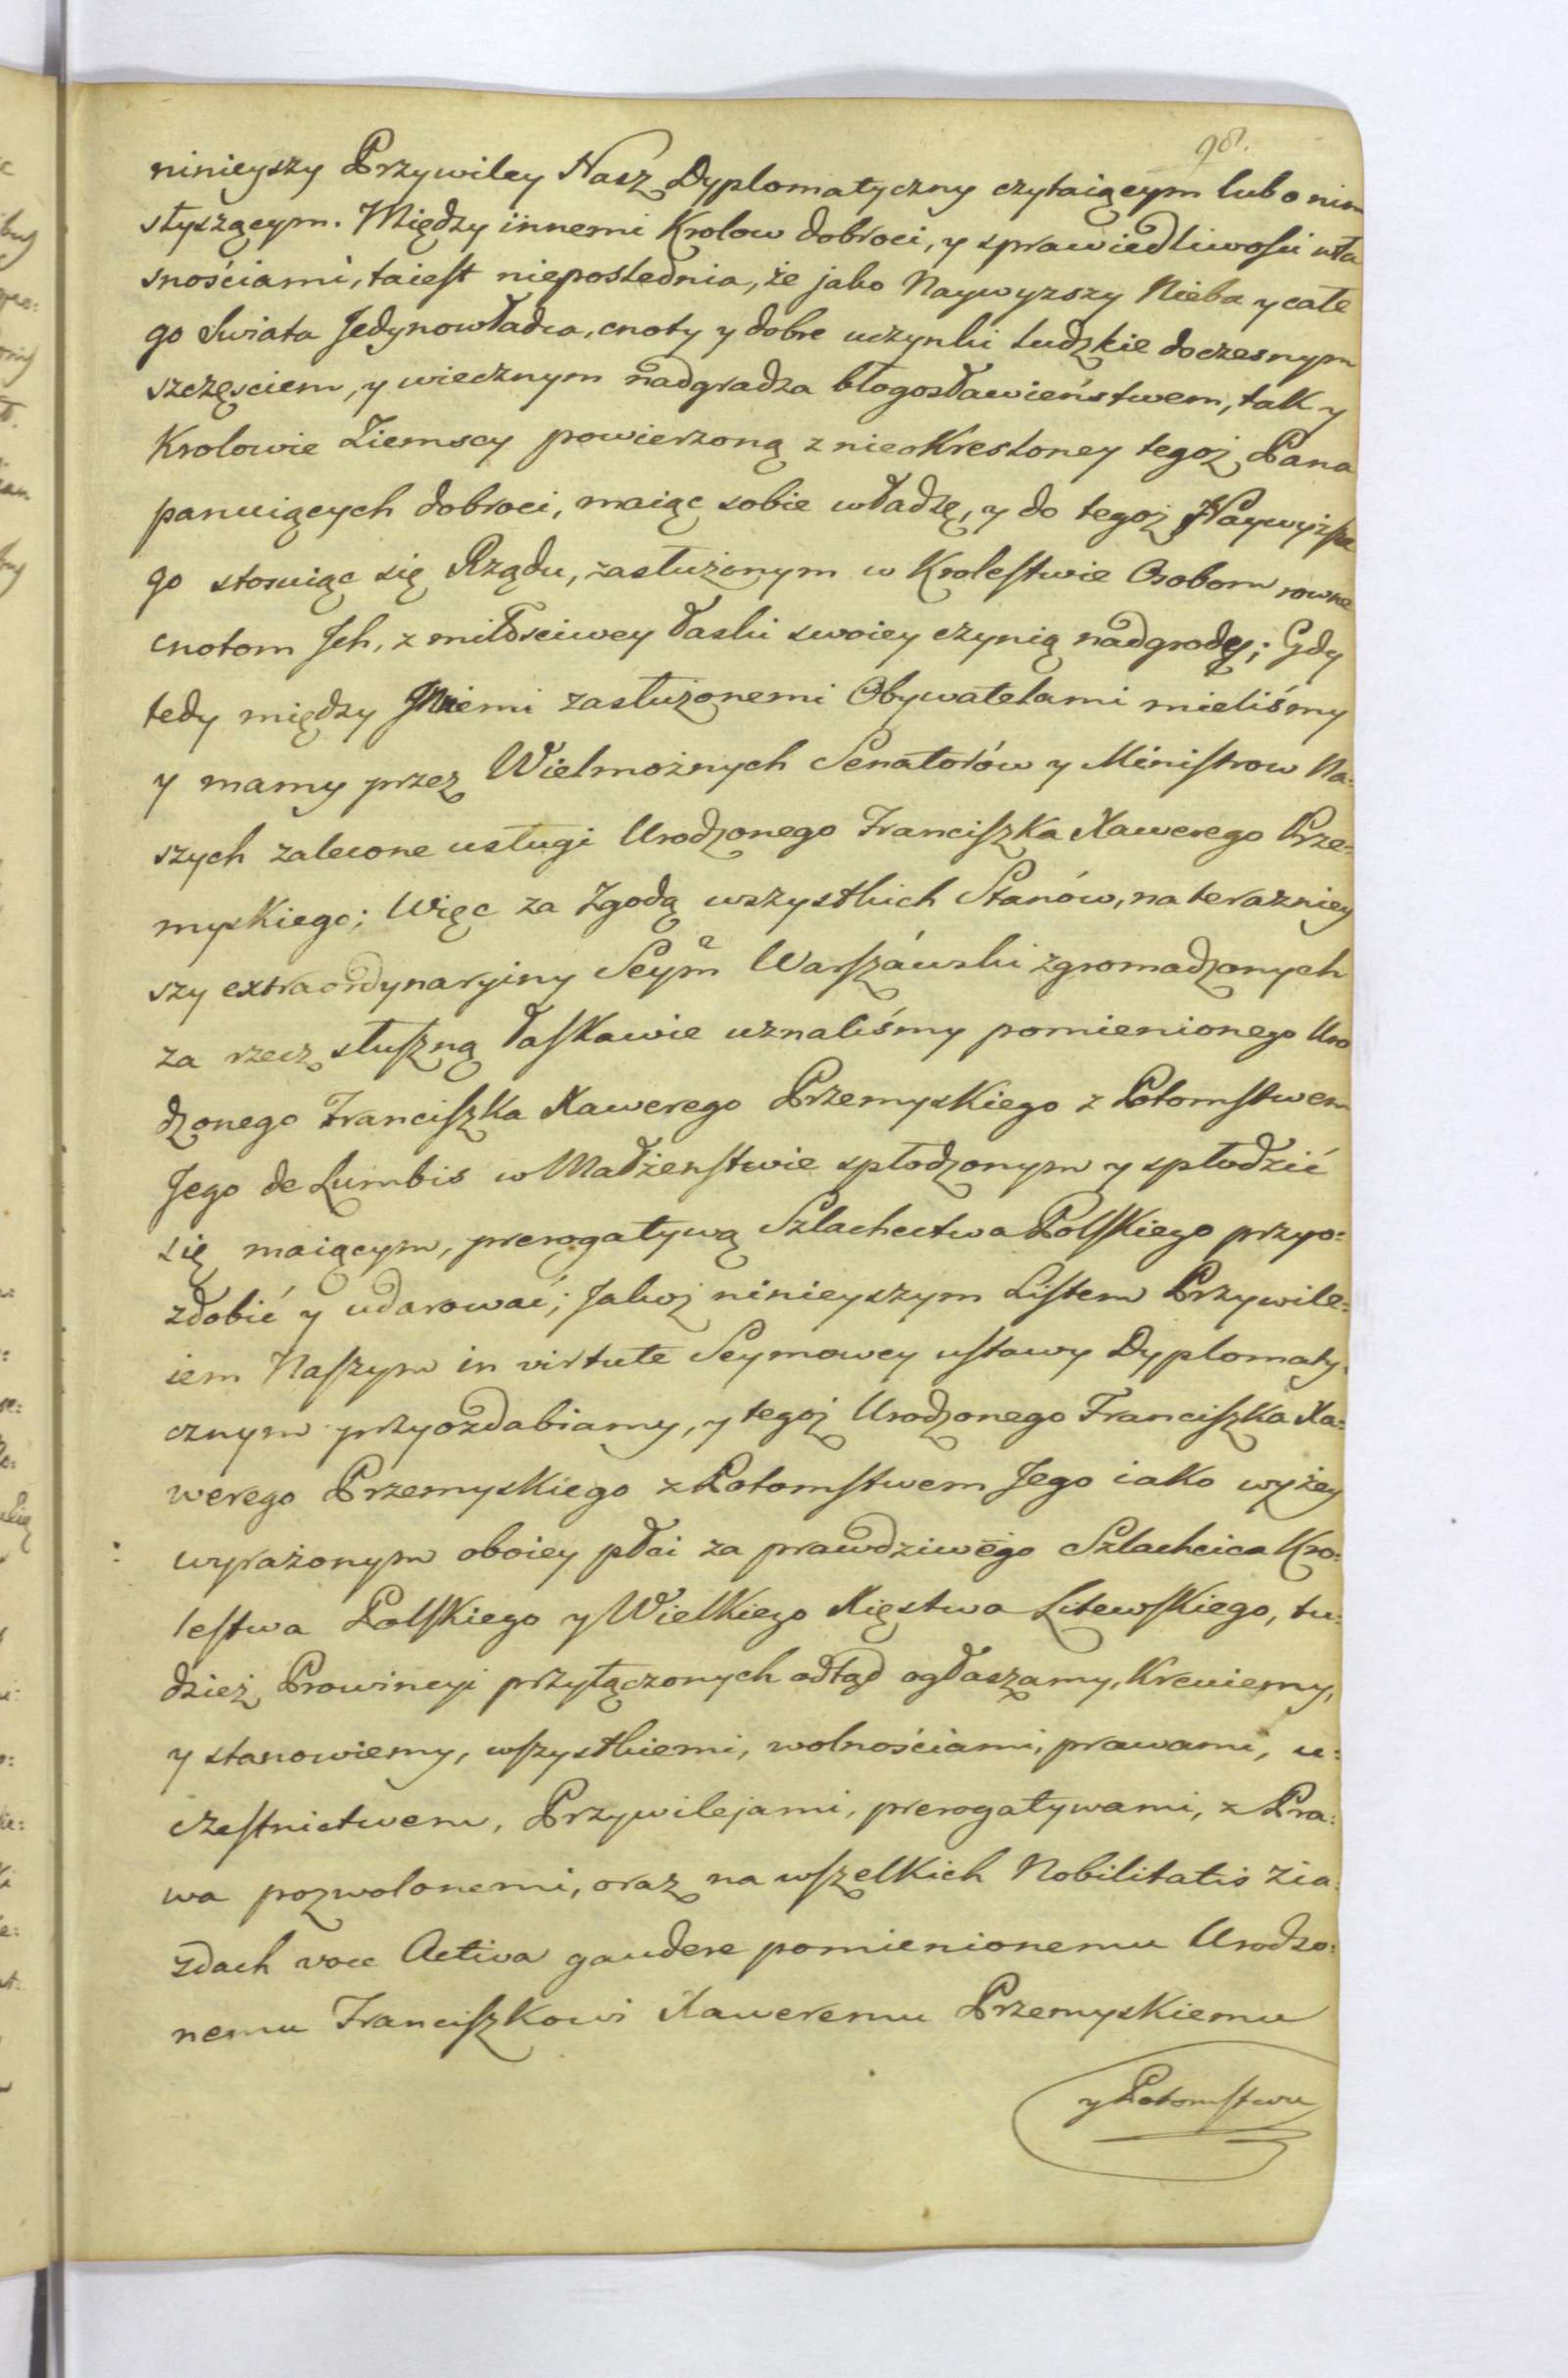 98.
ninieyszy Przywiley Nasz Dyplomatyczny czytaiącym lub o nim
słyszącym. Między innemi Krolow dobroci, y sprawiedliwości wła
snościami, ta iest nieposlednia, że jako Naywyzszy Nieba y całe
go Swiata Jedynowładca, cnoty y dobre uczynki ludzkie doczesnym
szczęsciem, y wiecznym nadgradza błogosławieństwem, tak y
Krolowie Ziemscy powierzoną z nieokresloney tegoż Pana
panuiących dobroci, maiąc sobie władzę, y do tegoż Naywyższe
go stosuiąc się Rządu, zasłużonym w Krolestwie Osobom rowne
cnotom Ich, z miłościwey łaski swoiey czynią nadgrodę; Gdy
tedy między Innemi zasłużonemi Obywatelami mieliśmy
y mamy przez Wielmożnych Senatorów y Ministrow Na:
szych zalecone usługi Urodzonego Franciszka Xawerego Prze=
myskiego; Więc za Zgodą wszystkich Stanów, na terazniey
szy extraordynaryiny Seym Warszáwski zgromadzonych
za rzecz słuszną łaskawie uznaliśmy pomienionego Uro
dzonego Franciszka Xawerego Przemyskiego z Potomstwem
Jego de Lumbis w Małżenstwie spłodzonym y spłodzić
się maiącym, prerogatywą Szlachectwa Polskiego przyo=
zdobić y udarować; Jakoż ninieyszym Listem Przywile=
iem Naszym in virtute Seymowey ustawy Dyplomaty=
cznym przyozdabiamy, y tegoż Urodzonego Franciszka Xa=
werego Przemyskiego z Potomstwem Jego iako wyżey
wyrażonym oboiey płci za prawdziwego Szlachcica Kro:
lestwa Polskiego y Wielkiego Xięstwa Litewskiego, tu:
dzież Prowincyi przyłączonych odtąd ogłaszamy, Kreuiemy,
y stanowiemy, wszystkiemi, wolnościami, prawami, u:
czestnictwem, Przywilejami, prerogatywami, z Pra:
wa pozwolonemi, oraz na wszelkich Nobilitatis zia:
zdach voce Activa gaudere pomienionemu Urodzo:
nemu Franciszkowi Xaweremu Przemyskiemu
y Potomstwu